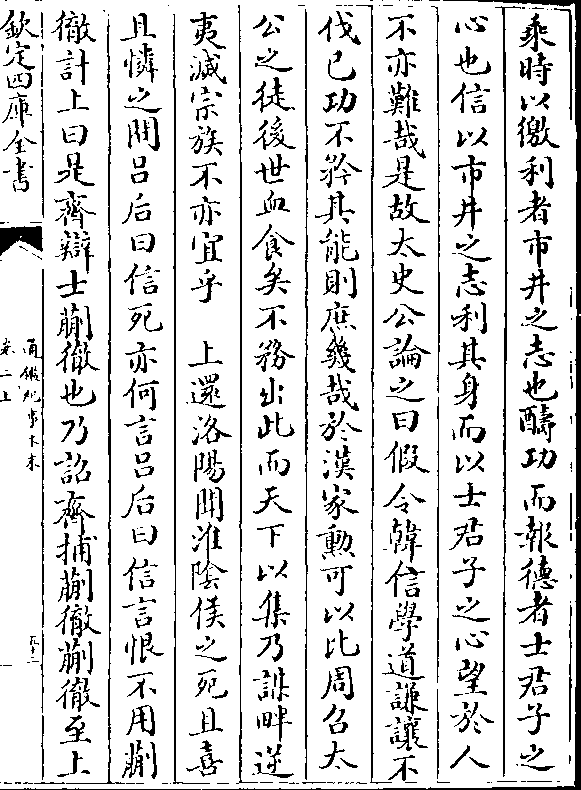 乘時以徼利者市井之志也醻功而報德者士君子之
心也信以市井之志利其身而以士君子之心望於人
不亦難哉是故太史公論之曰假令韓信學道謙讓不
伐已功不矜其能則庶幾哉於漢家勲可以比周召太
公之徒後世血食矣不務出此而天下以集乃謀畔逆
夷滅宗族不亦宜乎　上還洛陽聞淮陰侯之死且喜
且憐之問吕后曰信死亦何言吕后曰信言恨不用蒯
徹計上曰是齊辯士蒯徹也乃詔齊捕蒯徹蒯徹至上
欽定四庫全書
通鑑紀事本末
卷二上
五十二